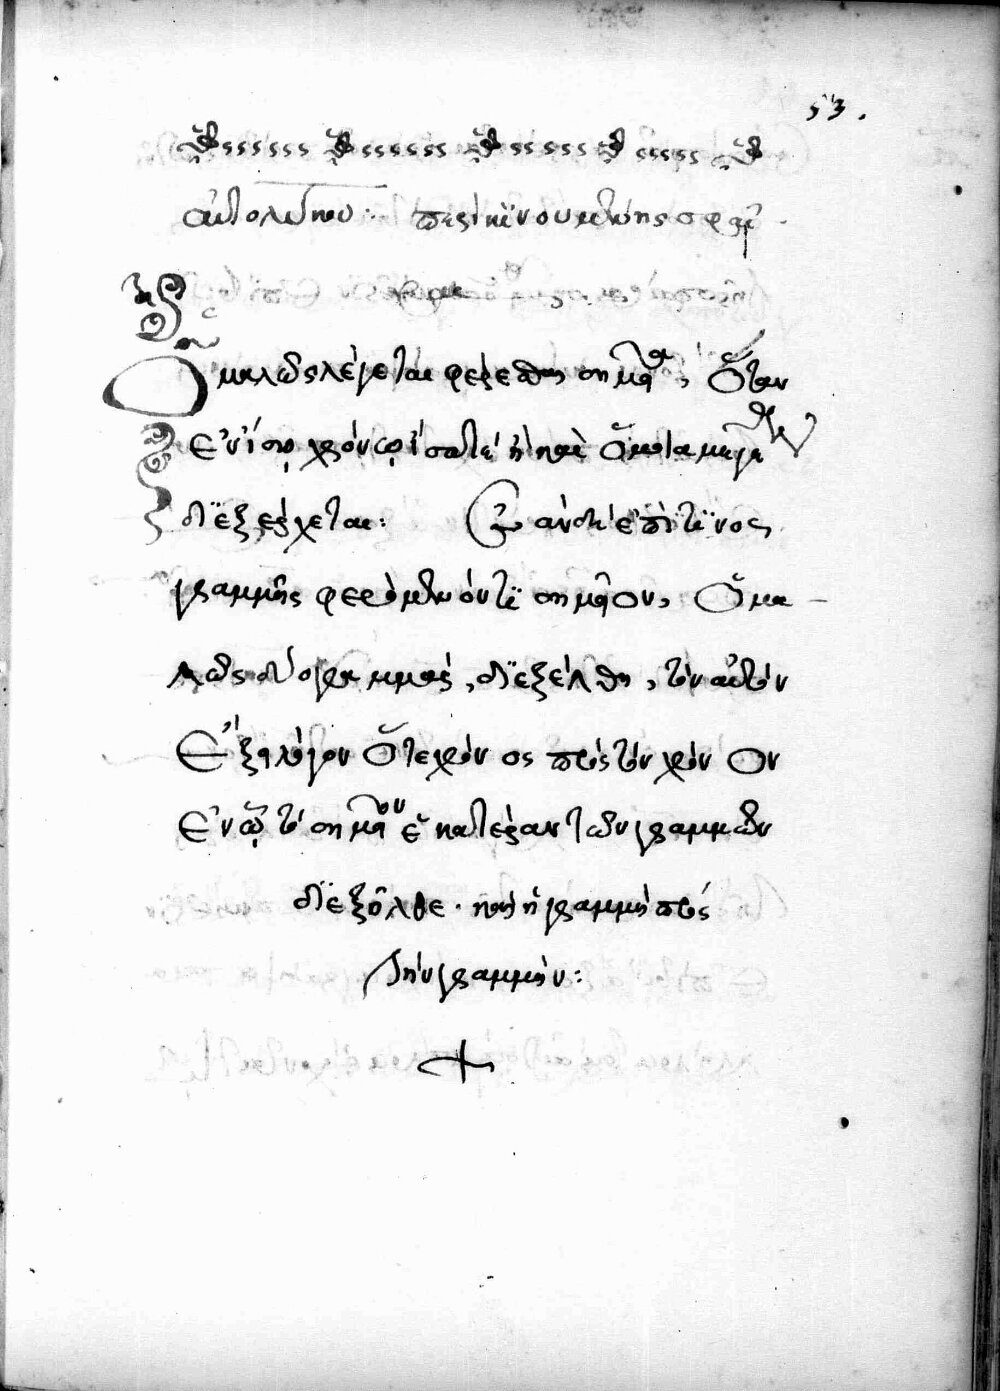 53.
αὐτολύκου: περὶ κινουμένης σφαί
Ὁμαλῶς λέγεται φέρεσθαι σημεῖα, Ὅταν
ἐν ἴσῳ χρόνῳ ἴσατε ἢ καὶ ὅμοια μεγέθη
διεξέρχεται: Ἐὰν δὲ ἐπί τινος
γραμμῆς φερόμενόν τι σημεῖον, Ὁμα
λῶς δύο γραμμὰς, διεξέλθη, τὸν αὐτὸν
Ἕξει λόγον Ὅ τε χρόνος πρὸς τὸν χρόνον
Ἐν ᾧ τὸ σημεῖον ἑκατέραν τῶν γραμμῶν
διεξῆλθε. καὶ ἡ γραμμὴ πρὸς
τὴν γραμμήν: